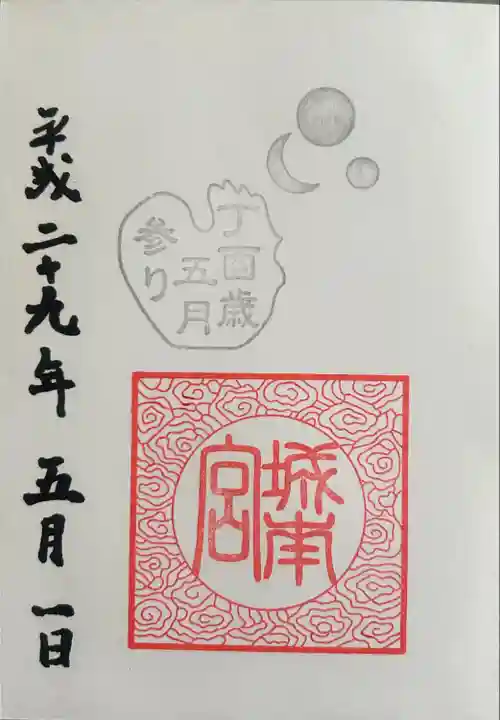 丁酉歳
五月
参り
城南
宮
平成二十九年五月一日